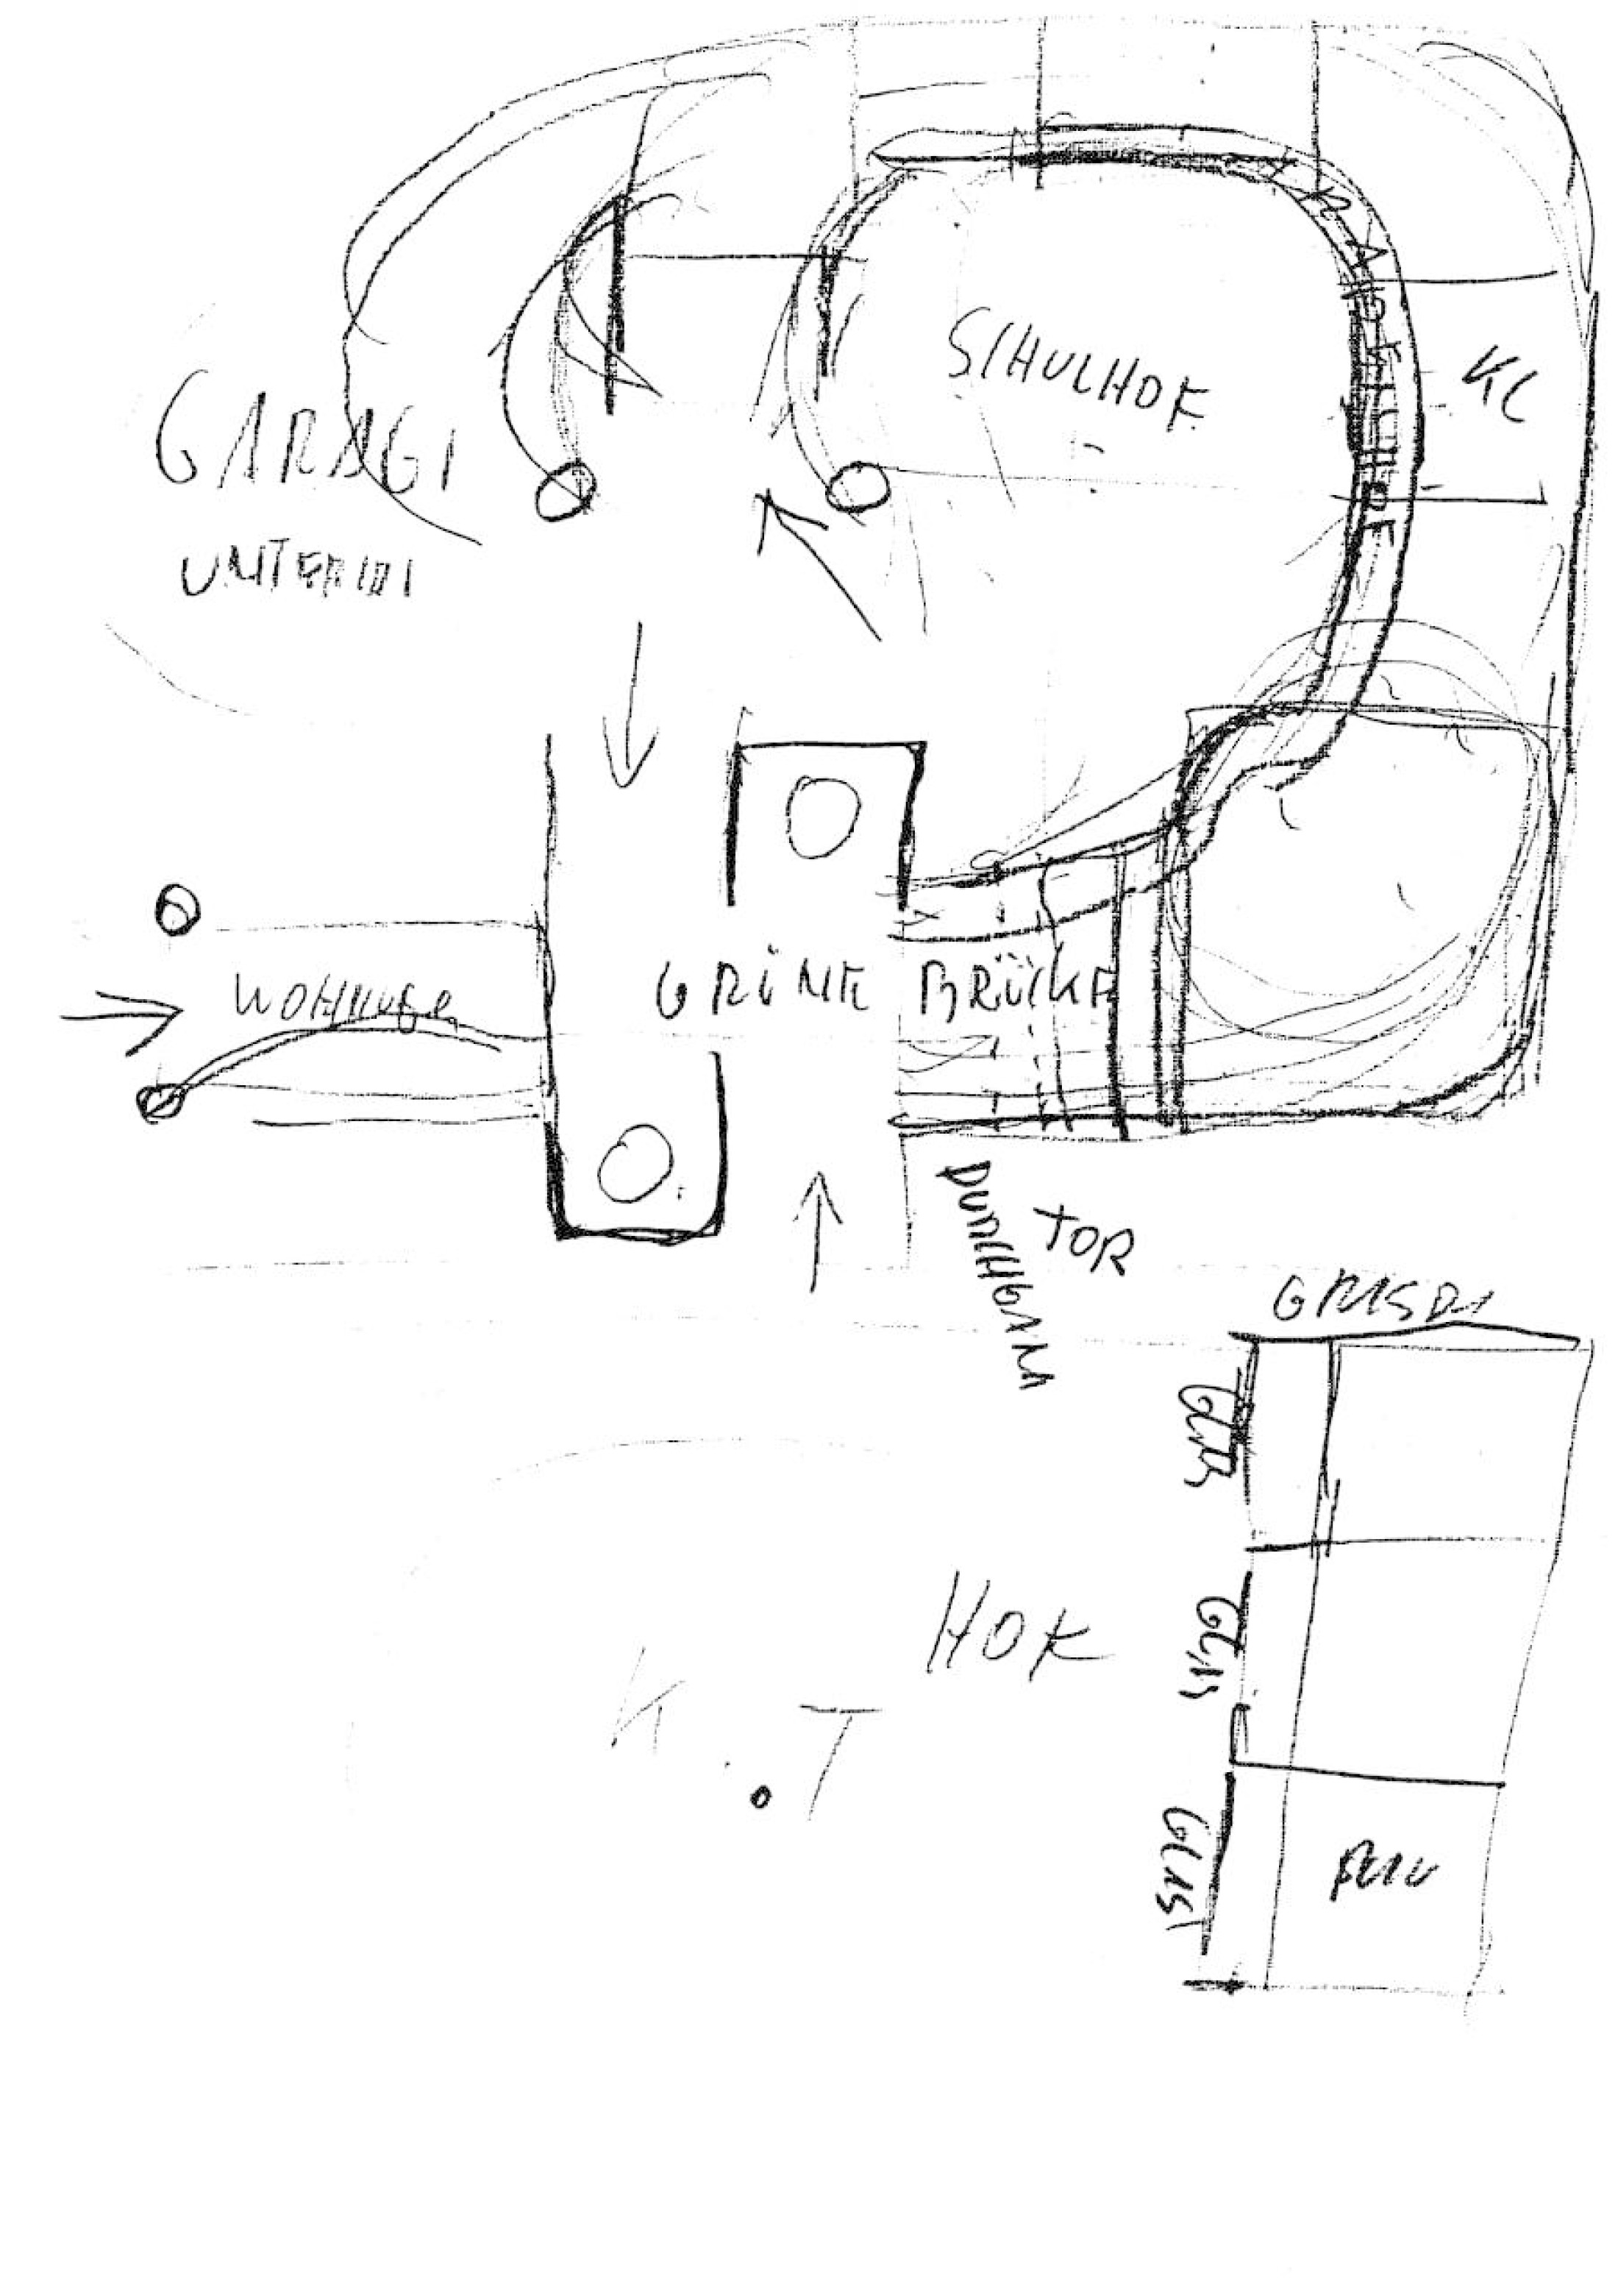 SCHULHOF
KL
GARAGE
UNTERIRD
WOHNUNGEN
GRÜNE BRÜCKE
DURCHGANG
TOR
GRASDA
GLAS
GLAS
HOF
K.T
GLAS